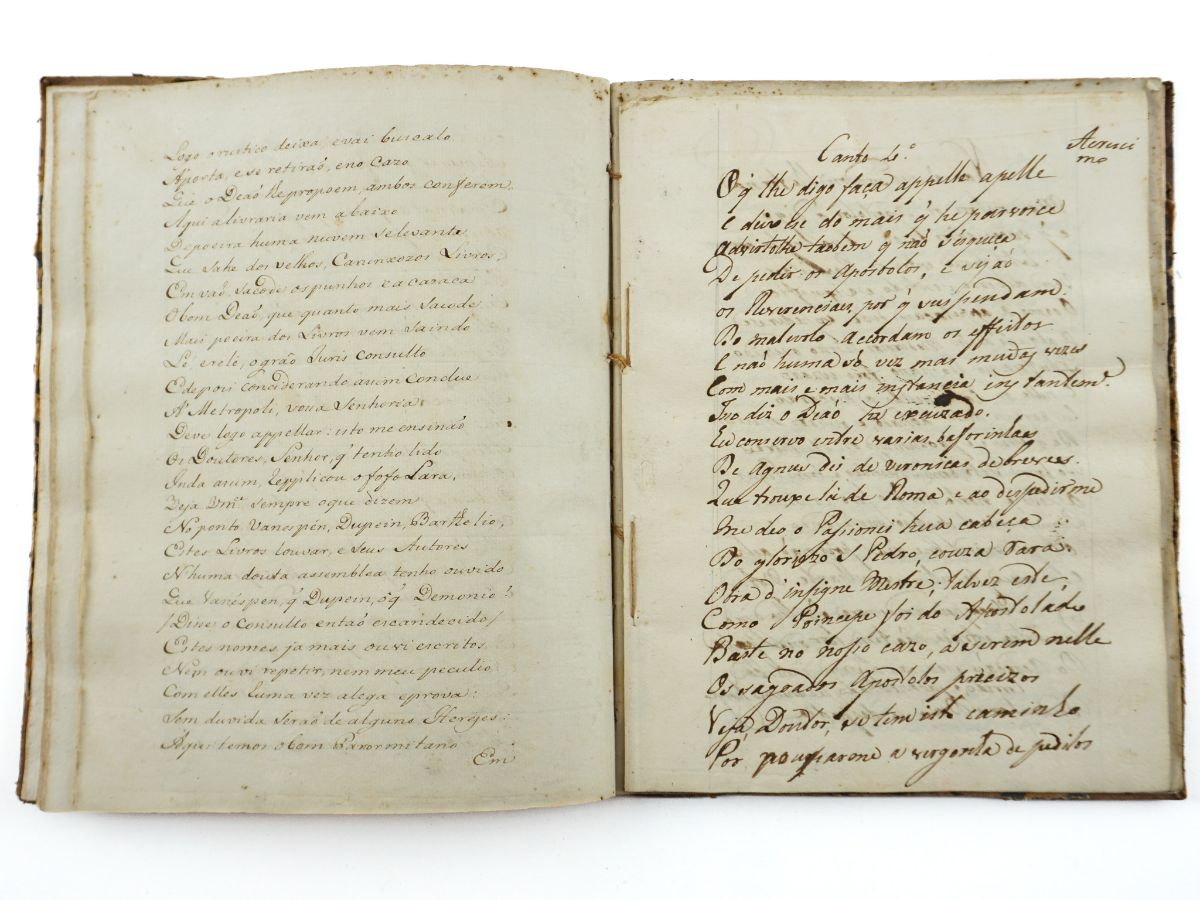 Logo o rustico deixa, e vai buscalo
A porta, e se retiraõ, e no Cazo
Que o Deaõ lhe propoem, ambos conferem.
Aqui a livraria vem abaixo
De poeira huma nuvem se levanta
Que sahe dos velhos, Carunxozos Livros,
Em vaõ sacode os punhos e a casaca
O bom Deaõ, que quanto mais sacode
Mais poeira dos Livros vem saindo
Lé e relé, o graõ Juris Consulto
E depois considerando asim conclue
A' Metropoli, vosa Senhoria
Deve logo appellar: isto me ensinaõ
Os Doutores, Senhor, q' tenho lido
Inda asim, Repplicou o fofo Lara,
Veja Vm.ᵉ sempre o que dizem
No ponto Vanespén, Dupein, Barthelio,
Estes Livros louvar, e seus Autores
N'huma douta assemblea tenho ouvido
Que Vanéspen, q' Dupein, ó q' Demonio?
/Dise o Consulto entaõ escandecido/
Estes nomes, ja mais ouvi escritos
Nem ouvi repetir, nem meu peculio
Com elles huma vez alega e prova:
Sem duvida seraõ de alguns Hereges:
Aqui temos o bom Panormitano
Em
Acresci
mo
Canto 4.º
O q' lhe digo faça appelle apelle
E disse do mais q' he
Advirtolhe taobem q' não s'isqueça
De pedir os Apostolos, e sijaõ
os Reverenciaes, por q' suspendam
Do malvolo Accordam os effeitos
E não huma só vez mas muitas vezes
Com mais e mais instancia instantem.ᵉ
Iso diz o Deaõ he excuzado.
Eu conservo entre varias baforinhas
De Agnus dis de veronicas de breves
Que trouxe lá de Roma e ao despedirme
Me deo o Pasionei hua cabeça
Do gloriozo S Pedro, couza rara
Obra d'insigne Mestre; Talvez este,
Como Principe foi do Apostolado
Baste no nosso cazo, a serem nelle
Os sagrados Apostolos precizos
Veja, Doutor, se tem isto caminho
Por poupparme a vergonha de pedilos